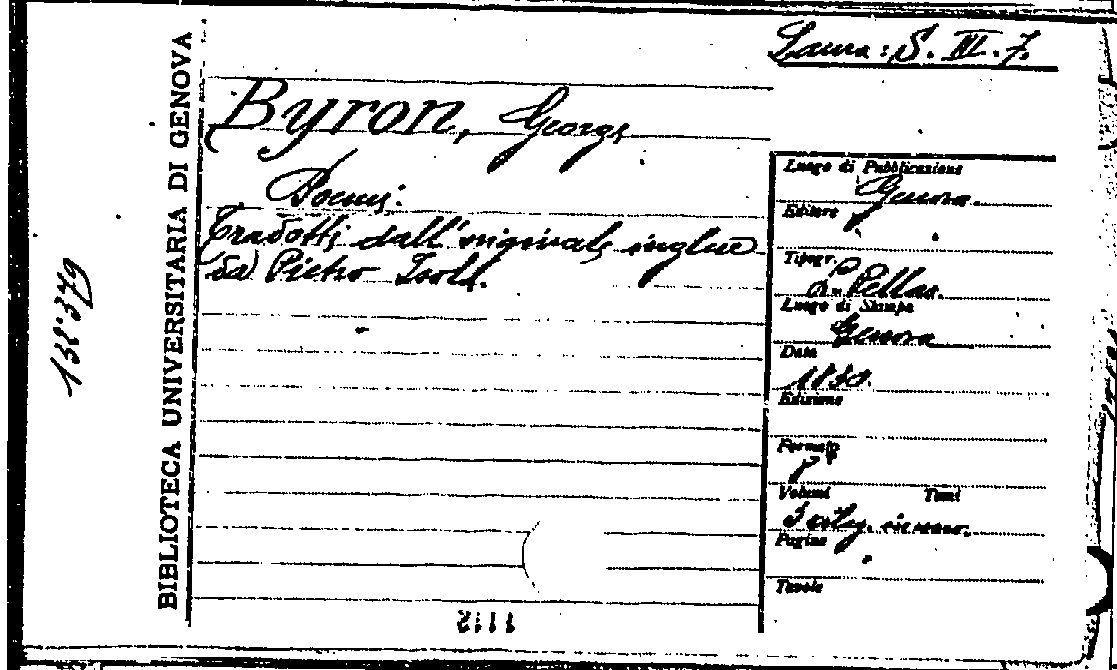 Laura: S. III. 7.
Byron, George
Poemi.
Tradotti dall'originale inglese
da Pietro Isola.
Luogo di Pubblicazione
Genova.
Editore
Tipogr.
L. Pellas.
Luogo di Stampa
Genova
Data
Edizione
Formato
Volumi Tomi
Pagine
Tavole
BIBLIOTECA UNIVERSITARIA DI GENOVA
1112